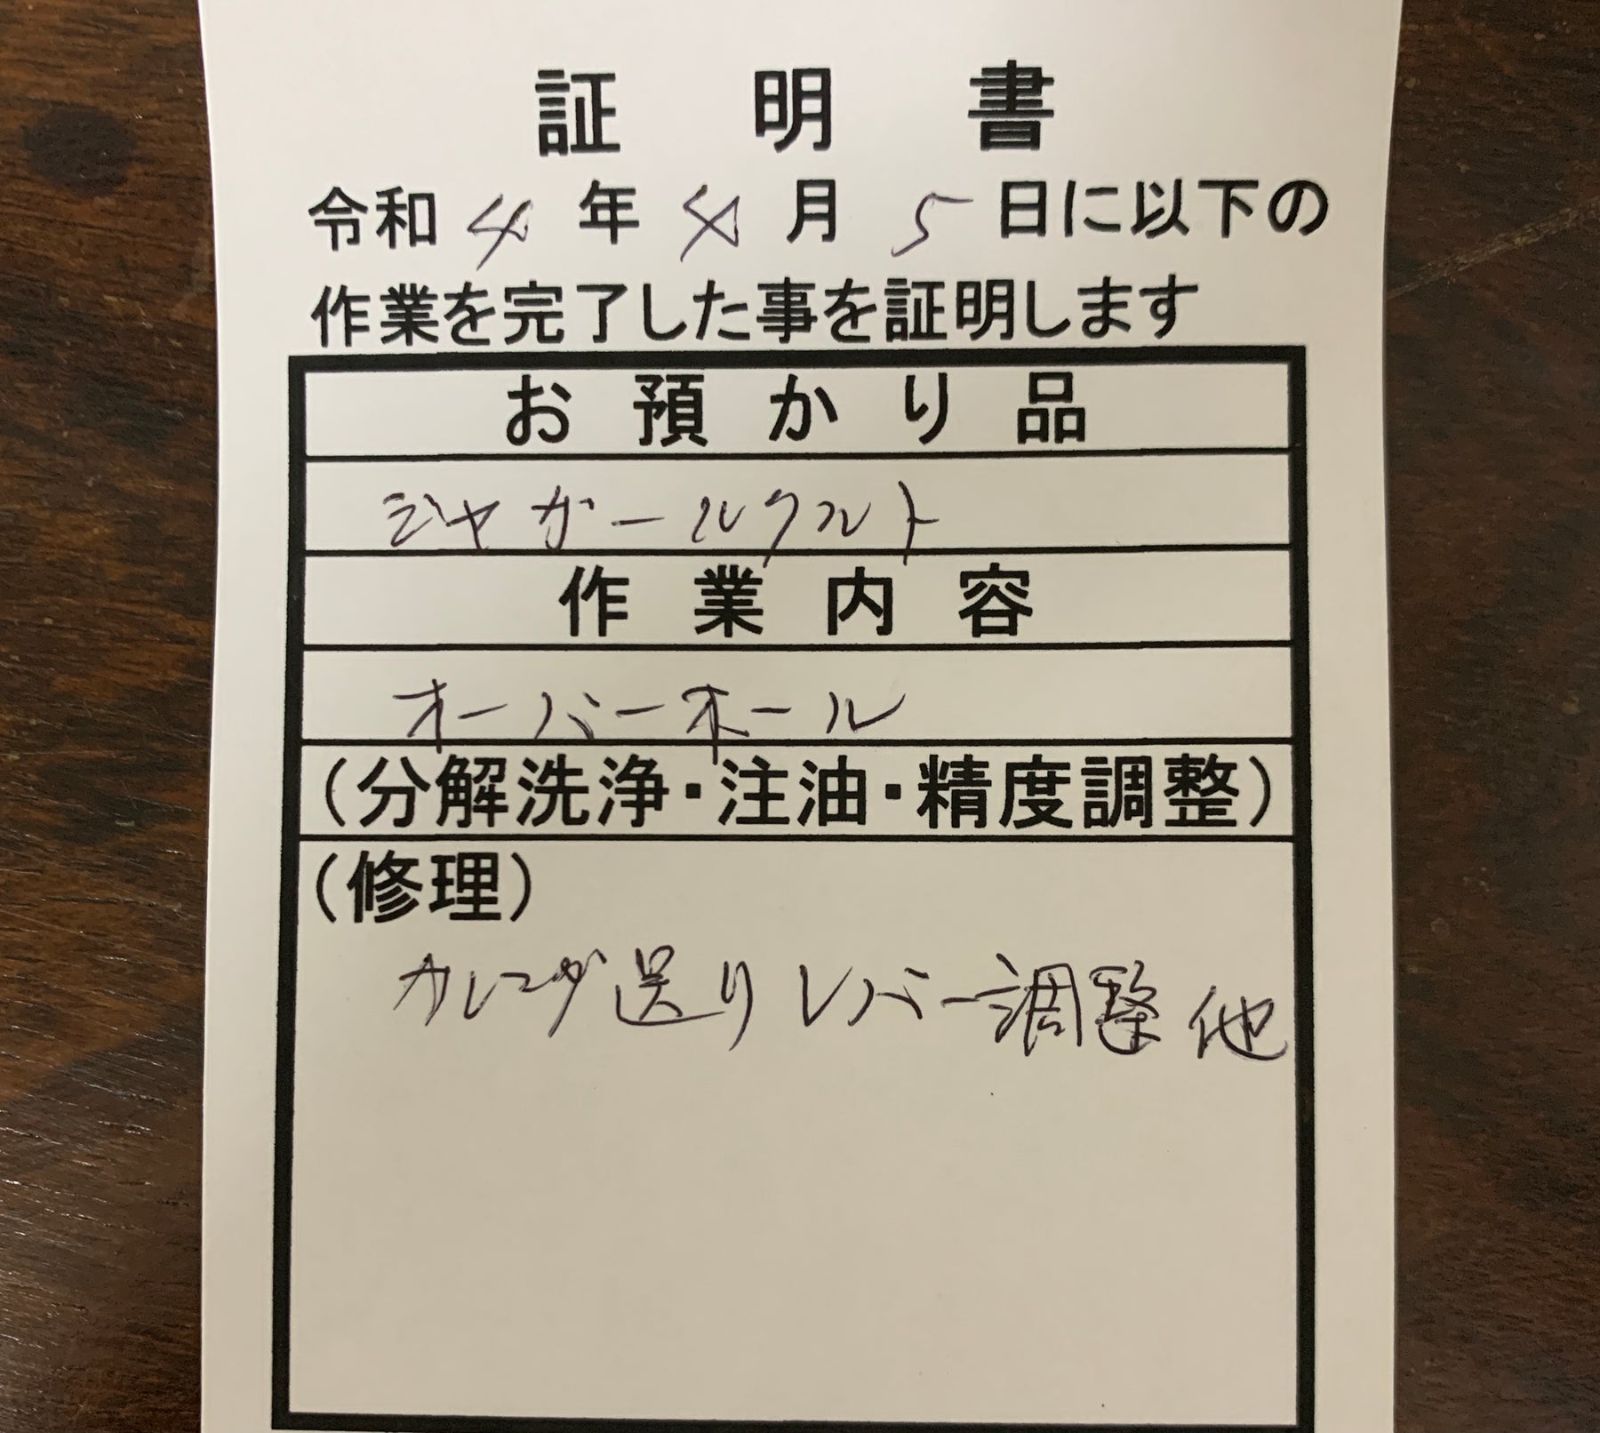 証明書
令和4年4月5日に以下の
作業を完了した事を証明します
お預かり品
ジャガールクルト
作業内容
オーバーホール
(分解洗浄・注油・精度調整)
(修理)
カレンダ送りレバー調整他